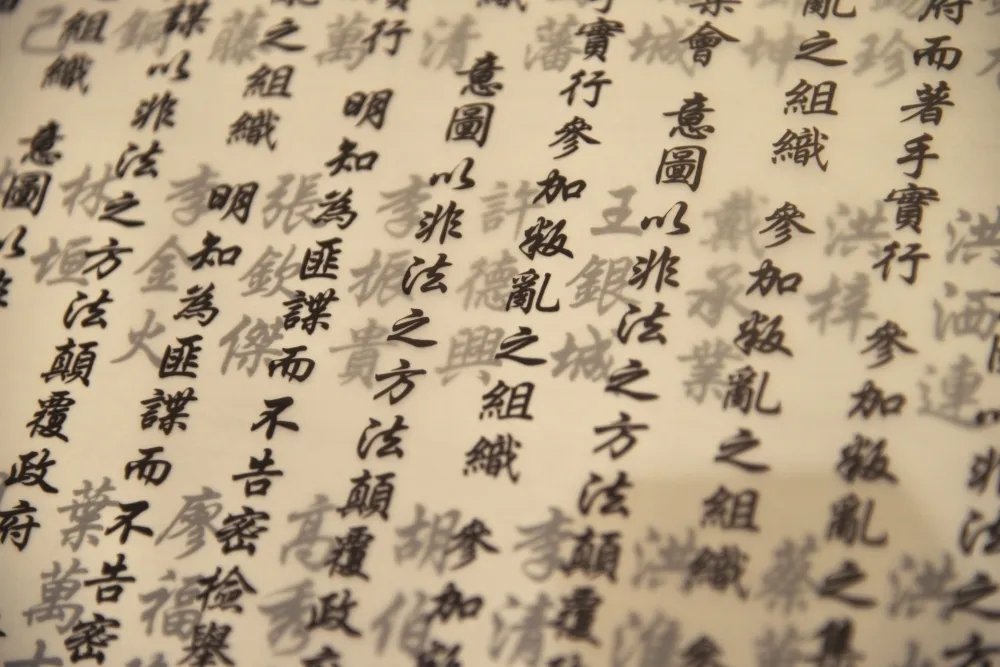 以非法之方
府而著手實行 參加叛亂之集
亂之組織 參加叛亂之組織 參
集會 意圖以非法之方法顛覆
實行參加叛亂之組織 參加叛
織 意圖以非法之方法顛覆政
行 明知為匪諜而不告密檢舉
之組織 明知為匪諜而不告密
諜以非法之方法顛覆政府
組織 意圖以
珍
坤
城
藩
清
萬
藤
己
洪洒連
洪梓
戴承業
王銀城
許德興
李振貴
張欽傑
李金火
林垣
洪
蔡
洪淮
李清
胡伯
高秀
廖福
葉萬